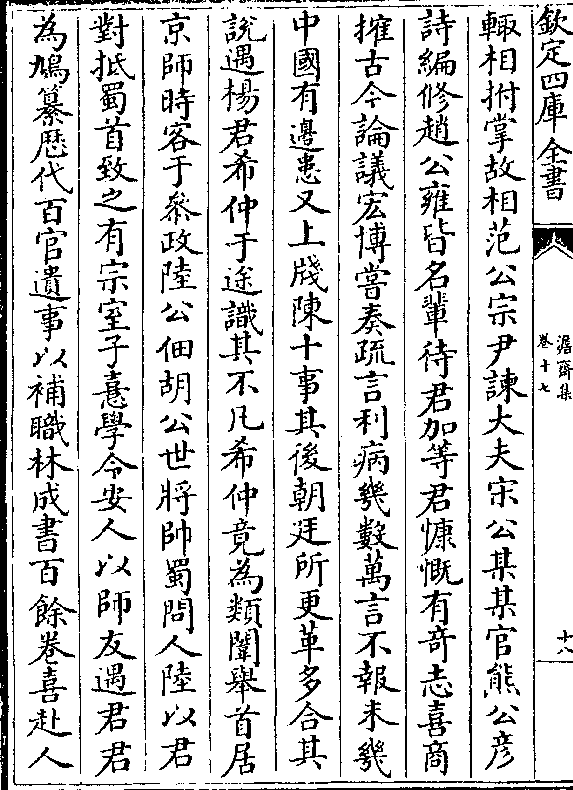 欽定四庫全書
潏齋集
卷十七
十八
輙相拊掌故相范公宗尹諫大夫宋公某某官熊公彦
詩編修趙公雍皆名輩待君加等君慷慨有竒志喜商
搉古今論議宏博嘗奏疏言利病幾數萬言不報未幾
中國有邊患又上牋陳十事其後朝廷所更革多合其
說遇楊君希仲于途識其不凡希仲竟為類闈舉首居
京師時客于叅政陸公佃胡公世將帥蜀問人陸以君
對抵蜀首致之有宗室子憙學令安人以師友遇君君
為鳩纂歴代百官遺事以補職林成書百餘卷喜赴人